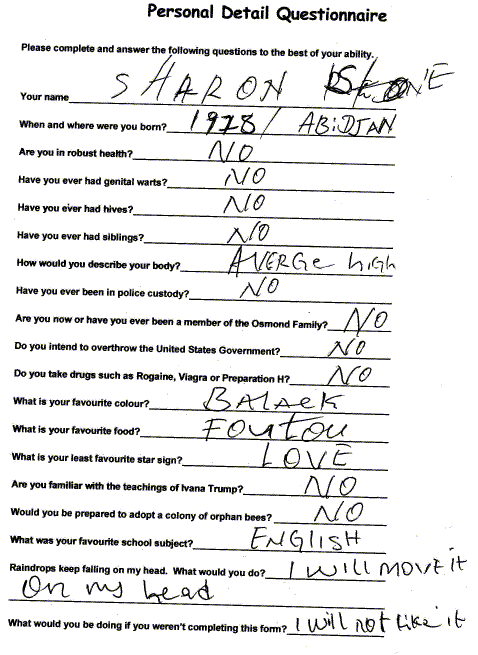 Personal Detail Questionnaire
Please complete and answer the following questions to the best of your ability.
Your name SHARON STONE
When and where were you born? 1978 / ABiDJAN
Are you in robust health? NO
Have you ever had genital warts? NO
Have you ever had hives? NO
Have you ever had siblings? NO
How would you describe your body? AVERGe high
Have you ever been in police custody? NO
Are you now or have you ever been a member of the Osmond Family? NO
Do you intend to overthrow the United States Government? NO
Do you take drugs such as Rogaine, Viagra or Preparation H? NO
What is your favourite colour? BALACK
What is your favourite food? FOUTOU
What is your least favourite star sign? LOVE
Are you familiar with the teachings of Ivana Trump? NO
Would you be prepared to adopt a colony of orphan bees? NO
What was your favourite school subject? ENGLISH
Raindrops keep falling on my head. What would you do? I Will MOVE it
On my head
What would you be doing if you weren't completing this form? I will not like it